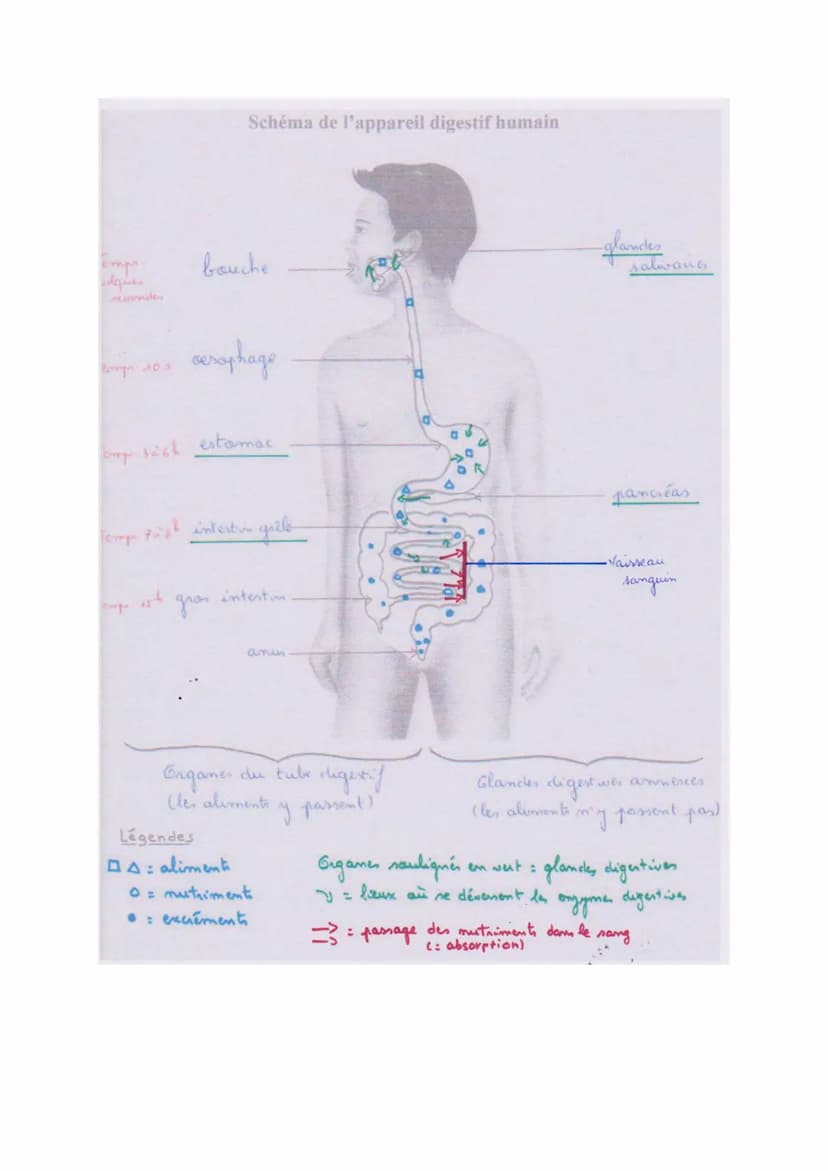 Schéma de l'appareil digestif humain
glandes
salivaires
bouche
oesophage
temps 10s
estomac
pancréas
intestin grêle
Vaisseau
sanguin
gros intestin
anus
Organes du tube digestif
(les aliments y passent)
Glandes digestives annexes
(les aliments n'y passent pas)
Légendes
: aliments
= nutriments
: excréments
Organes soulignés en vert : glandes digestives
= lieux où se déversent les enzymes digestives
= passage des nutriments dans le sang
(= absorption)